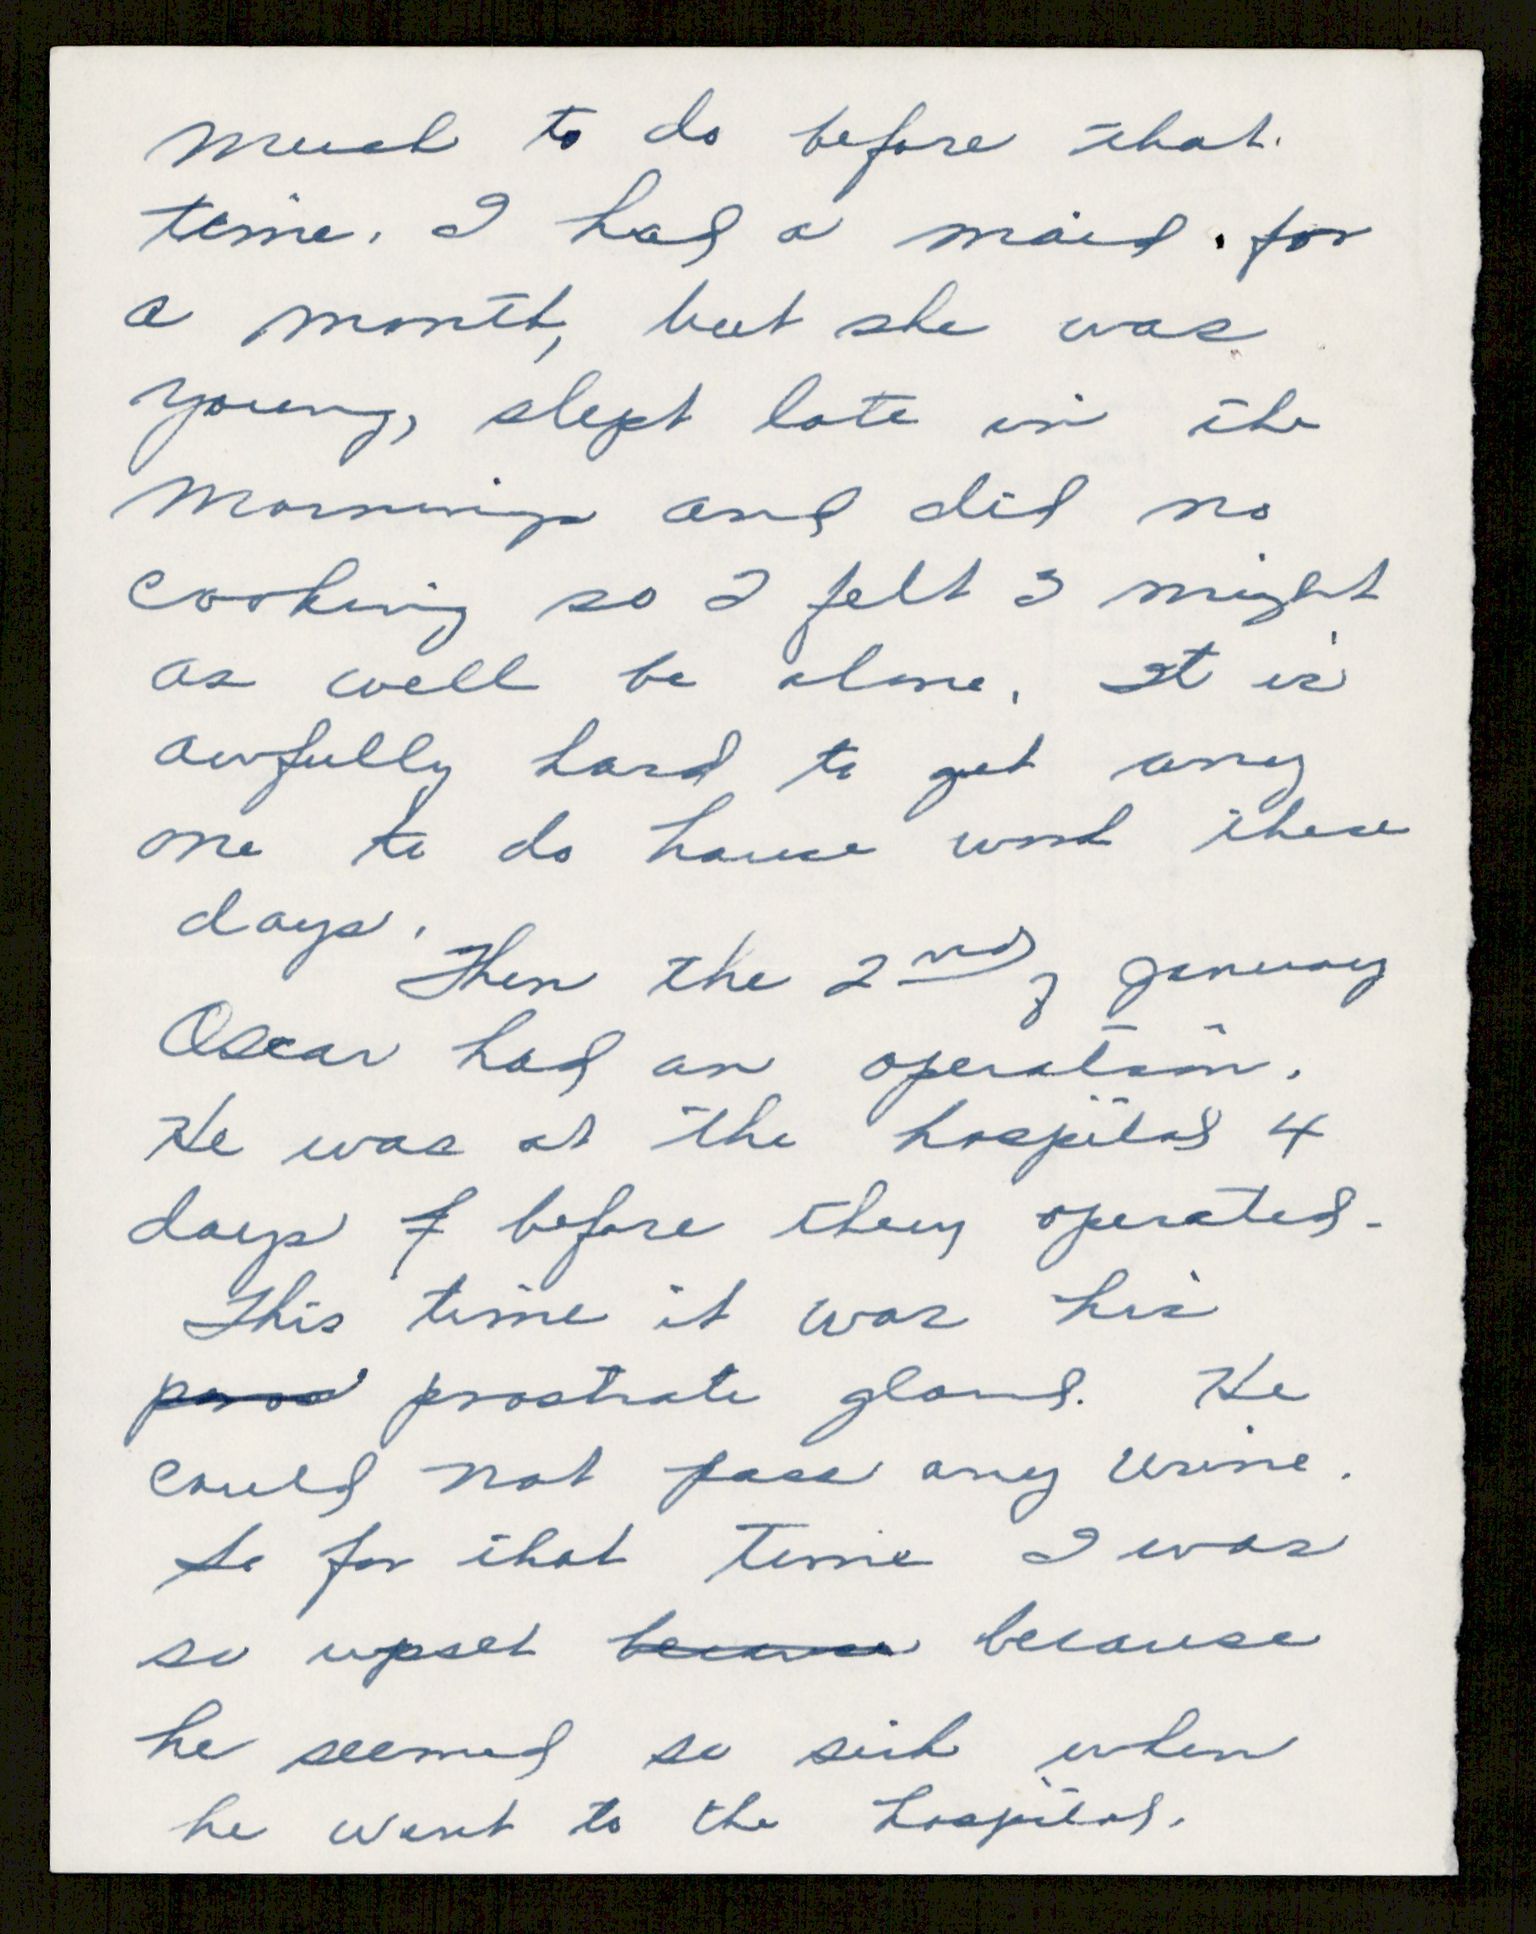 much to do before that
time. I had a maid for
a month, but she was
young, slept late in the
mornings and did no
cooking so I felt I might
as well be alone. It is
awfully hard to get any
one to do house work these
days.
Then the 2nd of January
Oscar had an operation.
He was at the hospital 4
days before they operated.
This time it was his
prostrate gland. He
could not pass any urine.
So for that time I was
so upset because because
he seemed so sick when
he went to the hospital.